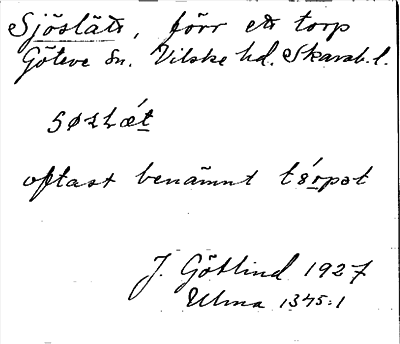 Sjöslätt, förr ett torp
Göteve sn. Vilske hd. Skarab.l.
oftast benämnt
J. Götlind 1927
Ulma 1345:1